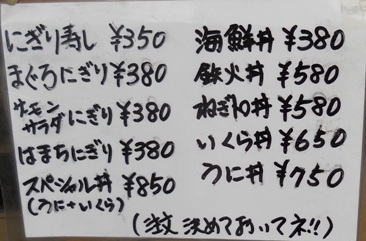 にぎり寿し ¥350
まぐろにぎり ¥380
サーモン
サラダにぎり ¥380
はまちにぎり ¥380
スペシャル丼 ¥850
(うに+いくら)
海鮮丼 ¥380
鉄火丼 ¥580
ねぎトロ丼 ¥580
いくら丼 ¥650
うに丼 ¥750
(注文 決めておいてネ!!)